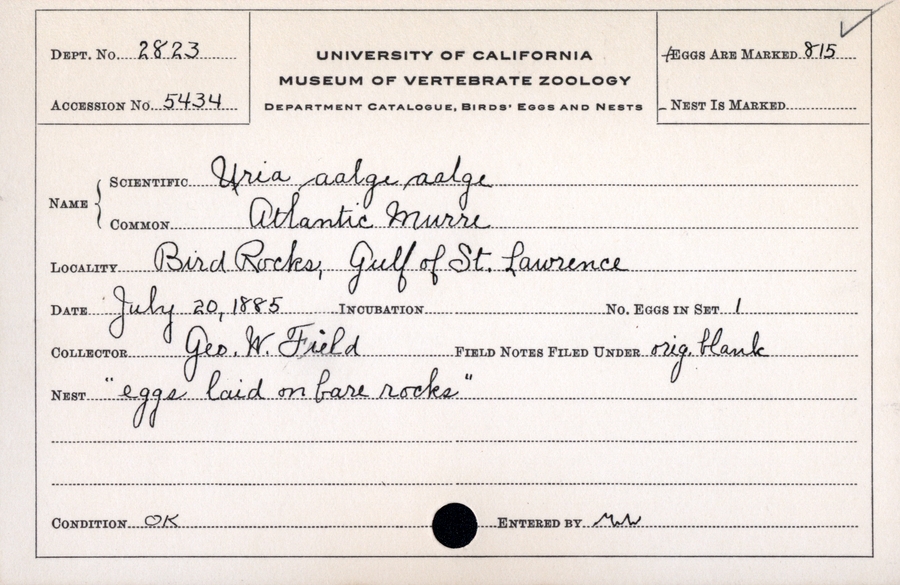 DEPT. No. 2823
UNIVERSITY OF CALIFORNIA
EGGS ARE MARKED 815
MUSEUM OF VERTEBRATE ZOOLOGY
ACCESSION No. 5434
DEPARTMENT CATALOGUE, BIRDS' EGGS AND NESTS
NEST IS MARKED
NAME
SCIENTIFIC Uria aalge aalge
COMMON Atlantic Murre
LOCALITY Bird Rocks, Gulf of St. Lawrence
DATE July 20, 1885 INCUBATION No. EGGS IN SET 1
COLLECTOR Geo. W. Field FIELD NOTES FILED UNDER orig. blank
NEST "eggs laid on bare rocks"
CONDITION OK ENTERED BY